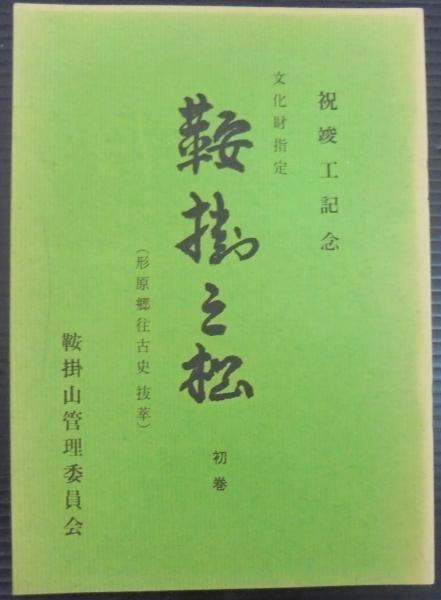 祝竣工記念
文化財指定
鞍掛之松
初巻
(形原郷往古史 抜萃)
鞍掛山管理委員会